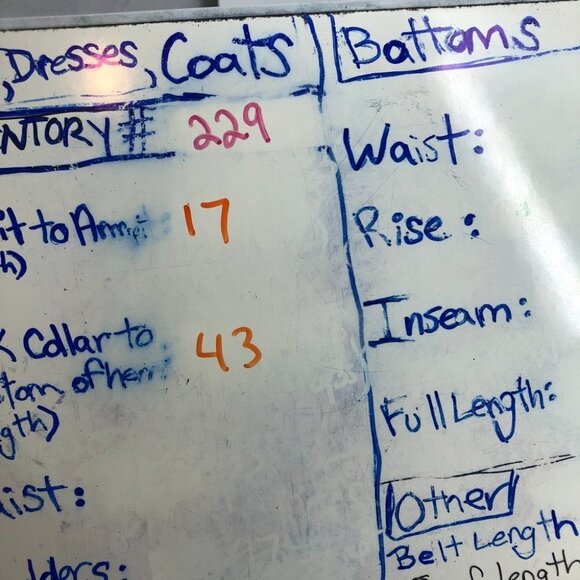 , Dresses, Coats
NTORY # 229
it to Armpit 17
h)
K Collar to 43
tom of hem:
gth)
aist:
lders:
Bottoms
Waist:
Rise:
Inseam:
Full Length:
Other
Belt Length
f length